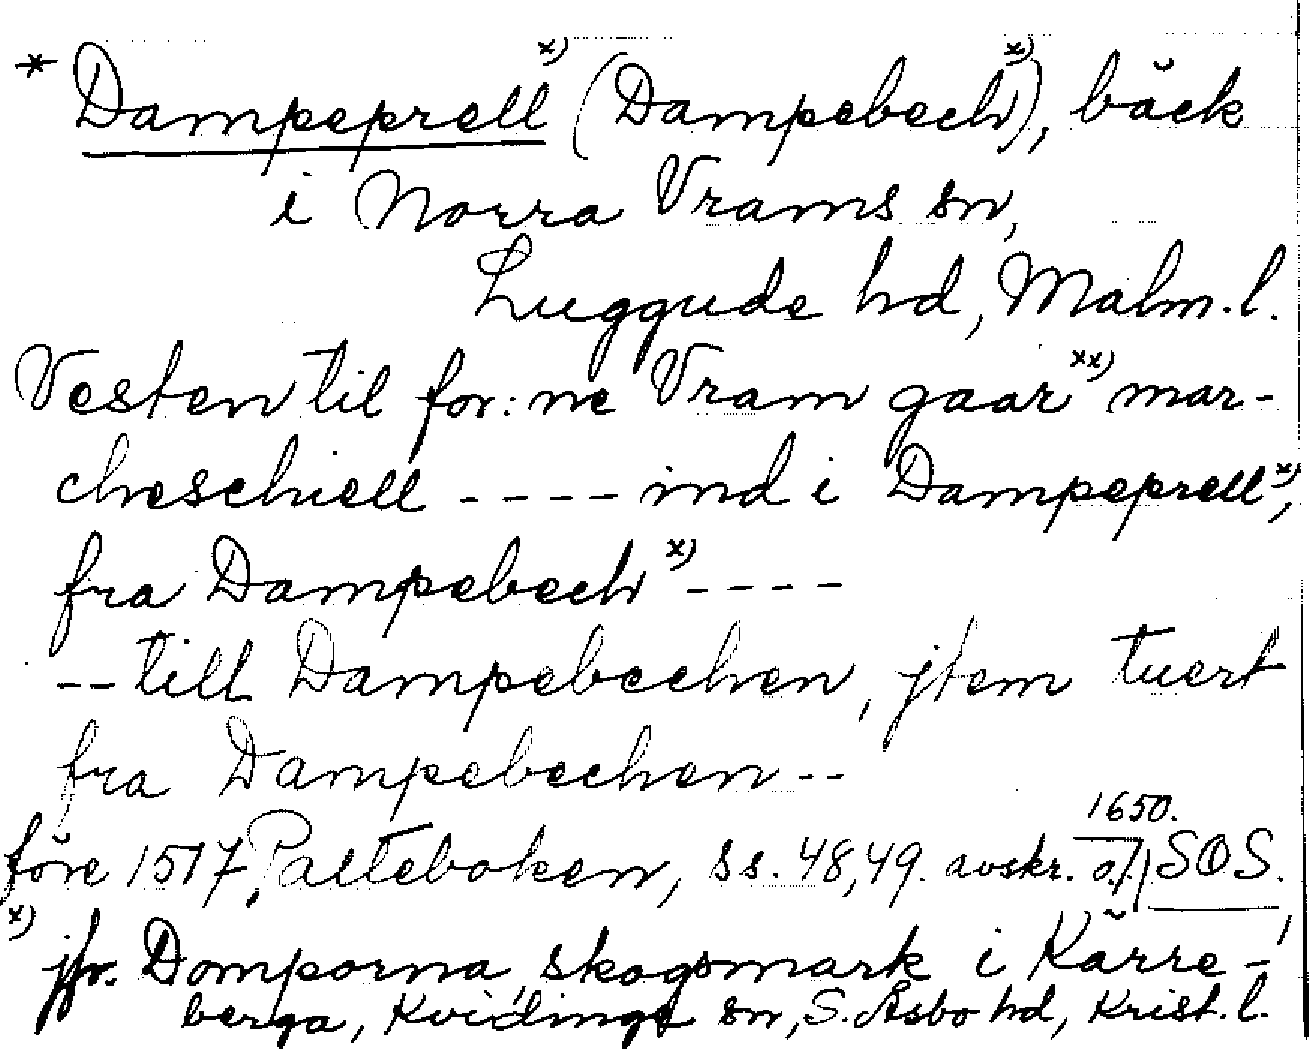 * Dampeprell x) (Dampebech x)), bäck
i Norra Vrams sn,
Luggude hd, Malm. l.
Vesten til for:ne Vram gaar xx) mar-
cheschiell ---- ind i Dampeprell x),
fra Dampebech x) ----
-- till Dampebechen, jtem tuert
fra Dampebechen --
1650.
före 1517, Palteboken, ss. 48,49. avskr. SOS.
x) jfr. Domporna, skogsmark i Kärre-
berga, Kvidinge sn, S. Åsbo hd, Krist. l.